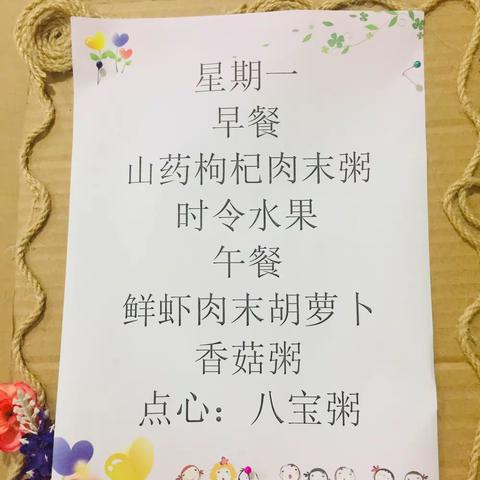 星期一
早餐
山药枸杞肉末粥
时令水果
午餐
鲜虾肉末胡萝卜
香菇粥
点心：八宝粥